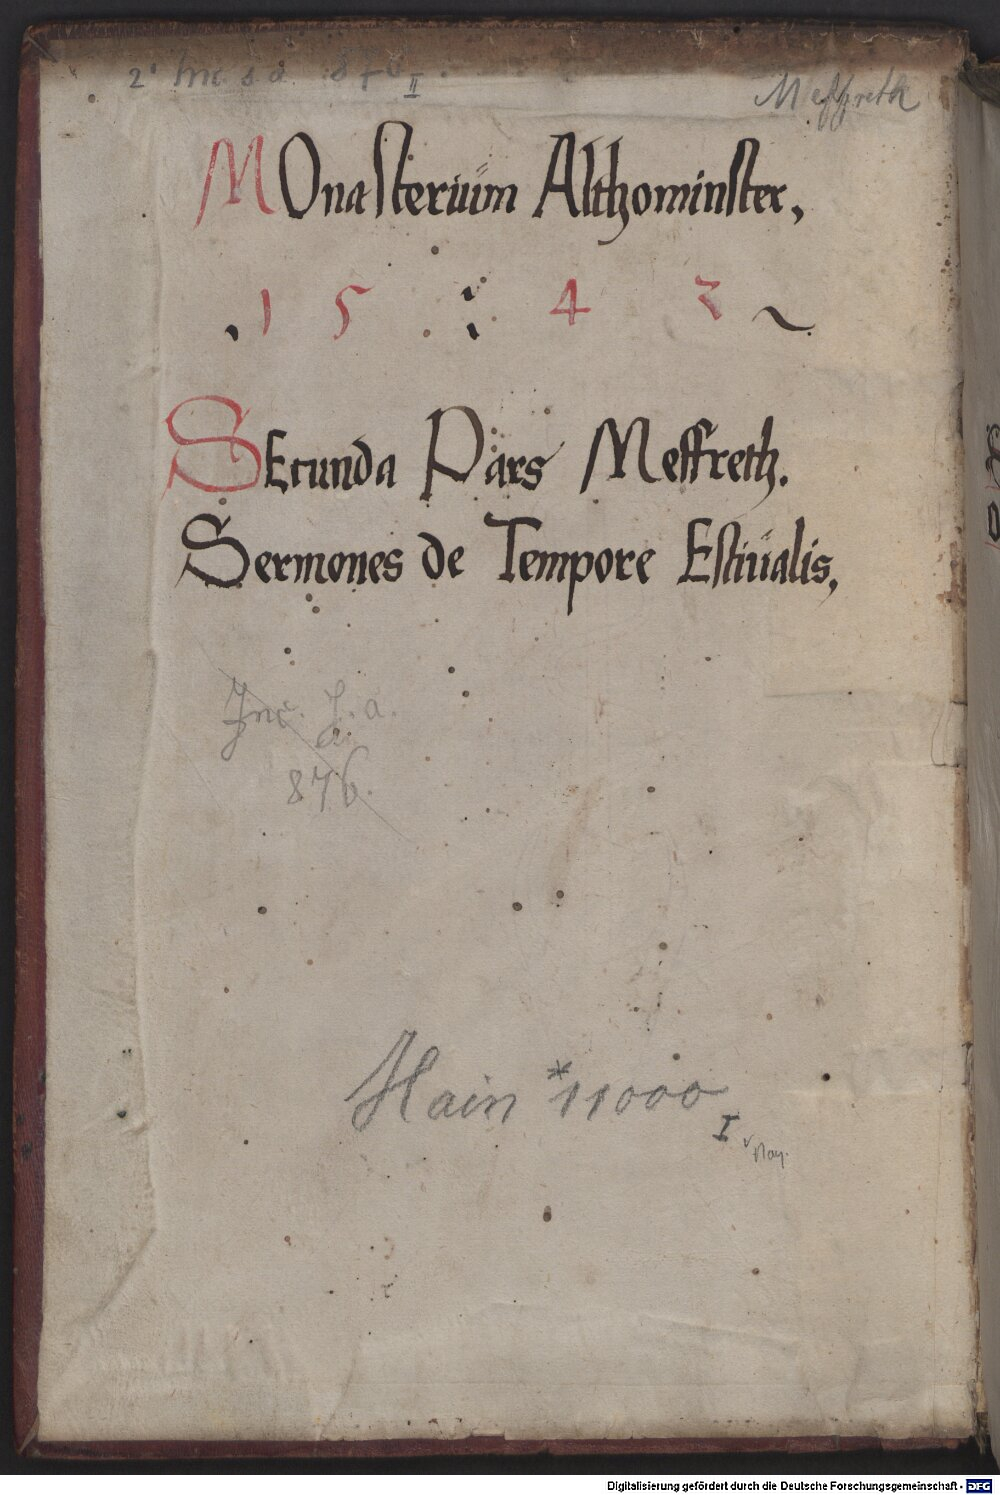 2° Inc. s. a. 876 II
Meffreth
MOnasterium Althominster,
1 5 : 4 2
SEcunda Pars Meffreth.
Sermones de Tempore Estiualis,
Inc. s. a.
876.
Hain *11000
I
Digitalisierung gefördert durch die Deutsche Forschungsgemeinschaft - DFG